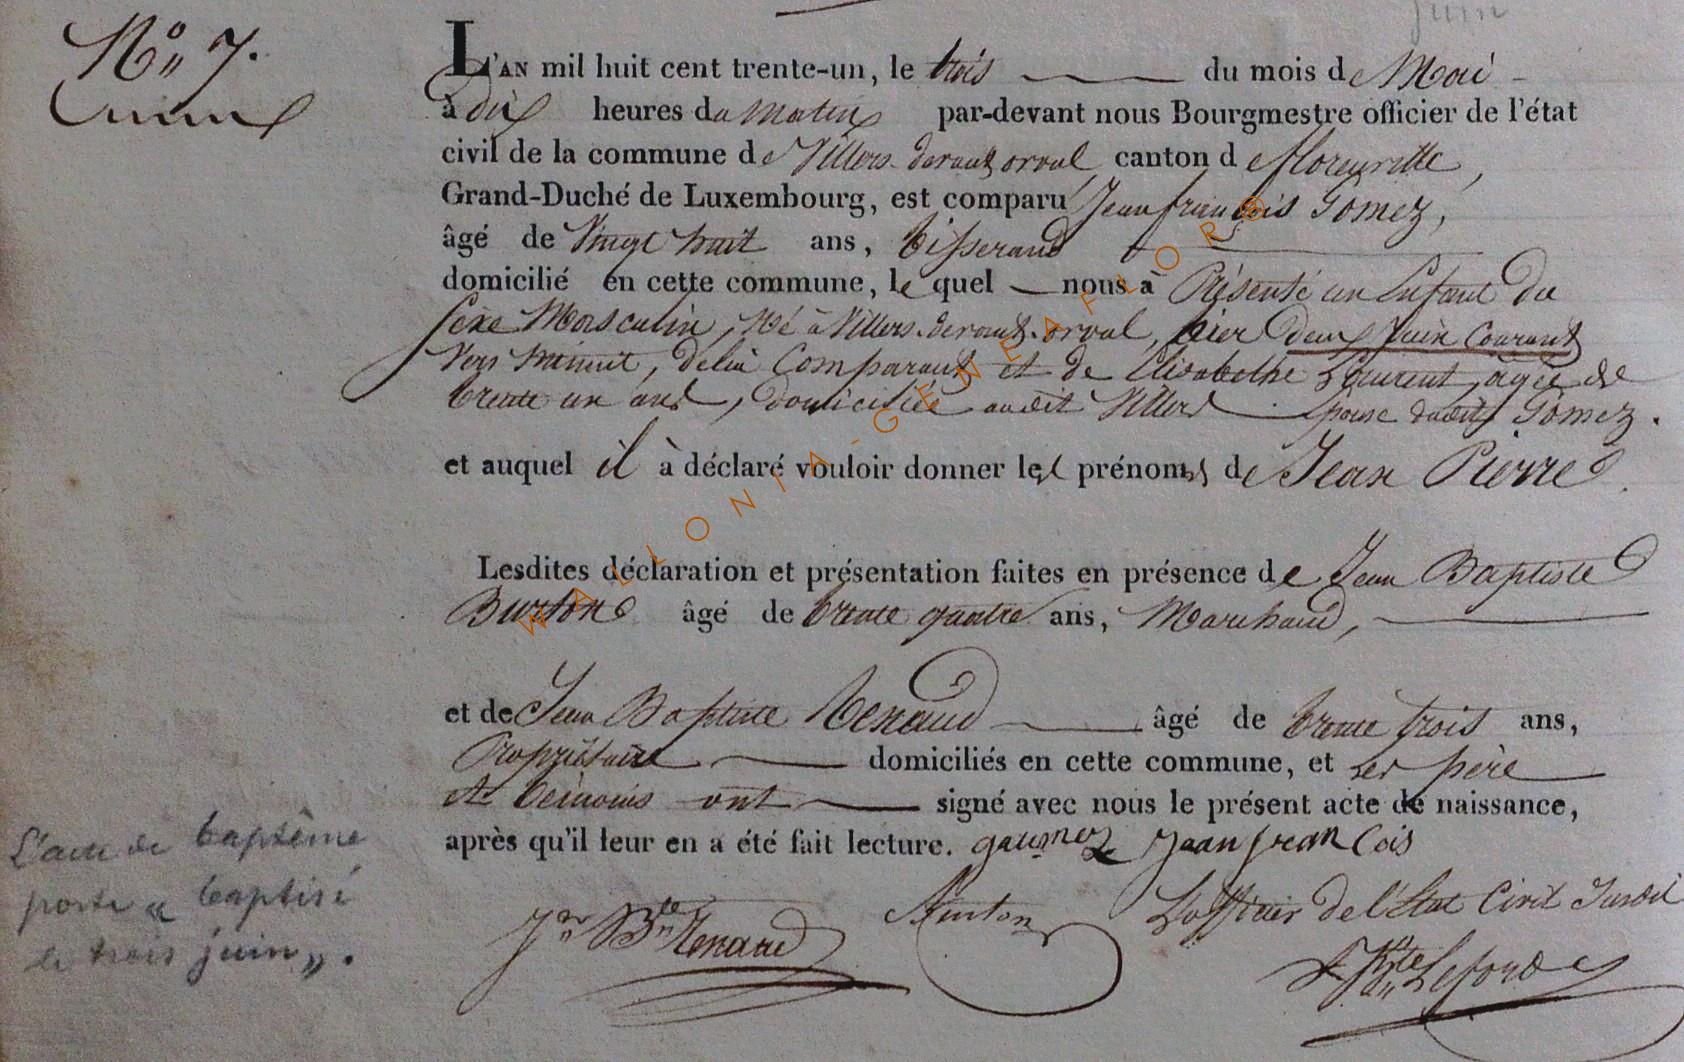 juin
N° 7.
L'AN mil huit cent trente-un, le trois du mois de Mai
à dix heures du Matin par-devant nous Bourgmestre officier de l'état
civil de la commune de Villers-devant-orval, canton de florenville,
Grand-Duché de Luxembourg, est comparu Jean françois Gomez,
âgé de Vingt huit ans, tisserand
domicilié en cette commune, le quel nous à Présenté un Enfant du
sexe Masculin, Né à Villers-devant-orval, hier deux Juin Courant
Vers Minuit, de lui Comparant et de Elisabethe Laurent, âgée de
trente un ans, domiciliée audit Villers Epouse dudit Gomez.
et auquel il à déclaré vouloir donner les prénoms de Jean Pierre.
Lesdites déclaration et présentation faites en présence de Jean Baptiste
Burton âgé de trente quatre ans, Marchand,
et de Jean Baptiste Renaud âgé de trente trois ans,
Propriétaire domiciliés en cette commune, et les père
et témoins ont signé avec nous le présent acte de naissance,
après qu'il leur en a été fait lecture. gaumez Jean fran Cois
Jn Bte Renaud Burton L'officier de l'État Civil Susdit
L'acte de baptême
porte « baptisé
le trois juin ».
WALLONIA-GENEAFLOR®